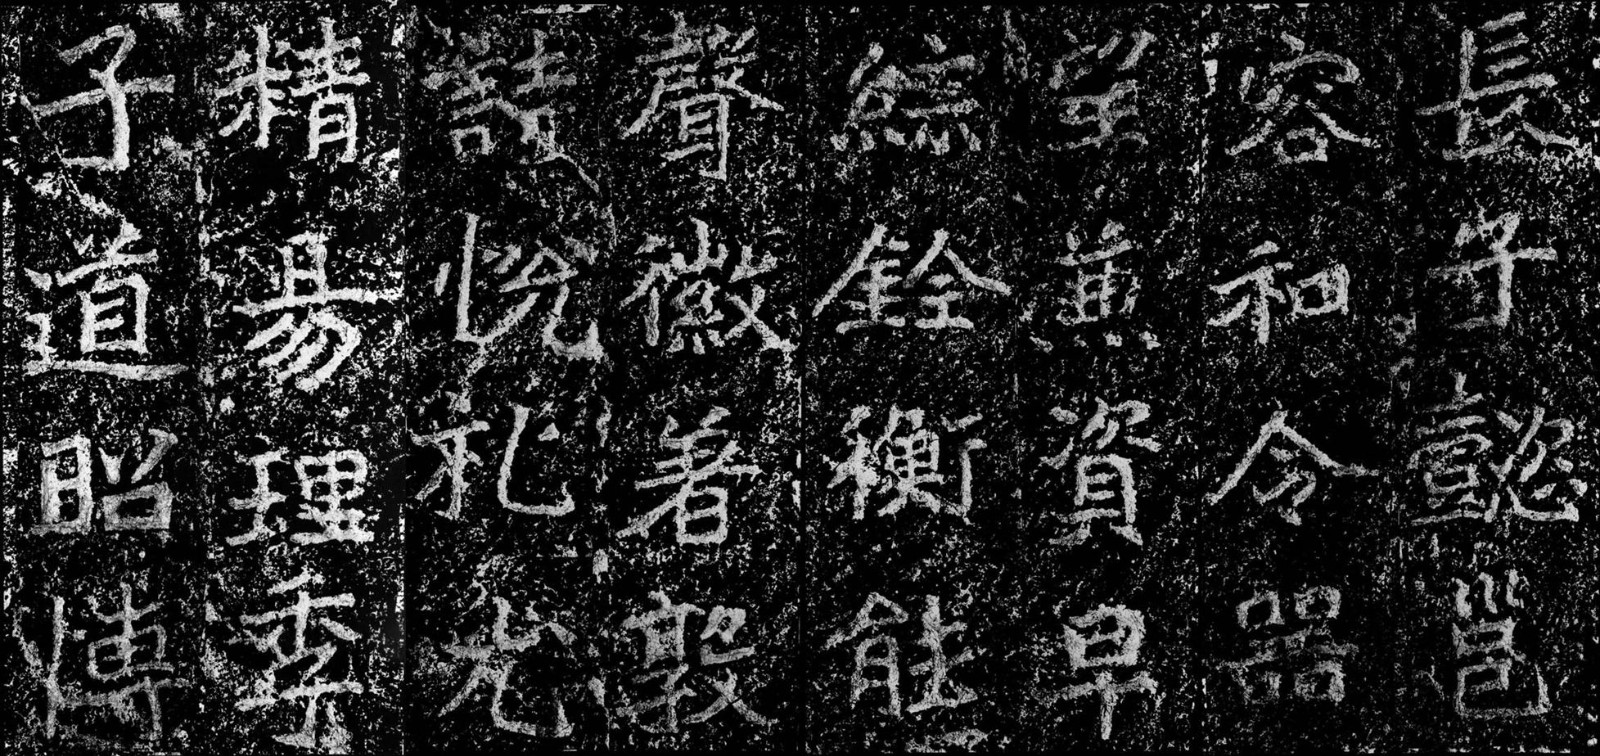 長子懿邕
容和令器
望兼資早
綜銓衡能
聲徽著敦
詩悅礼尤
精易理季
子道昭博